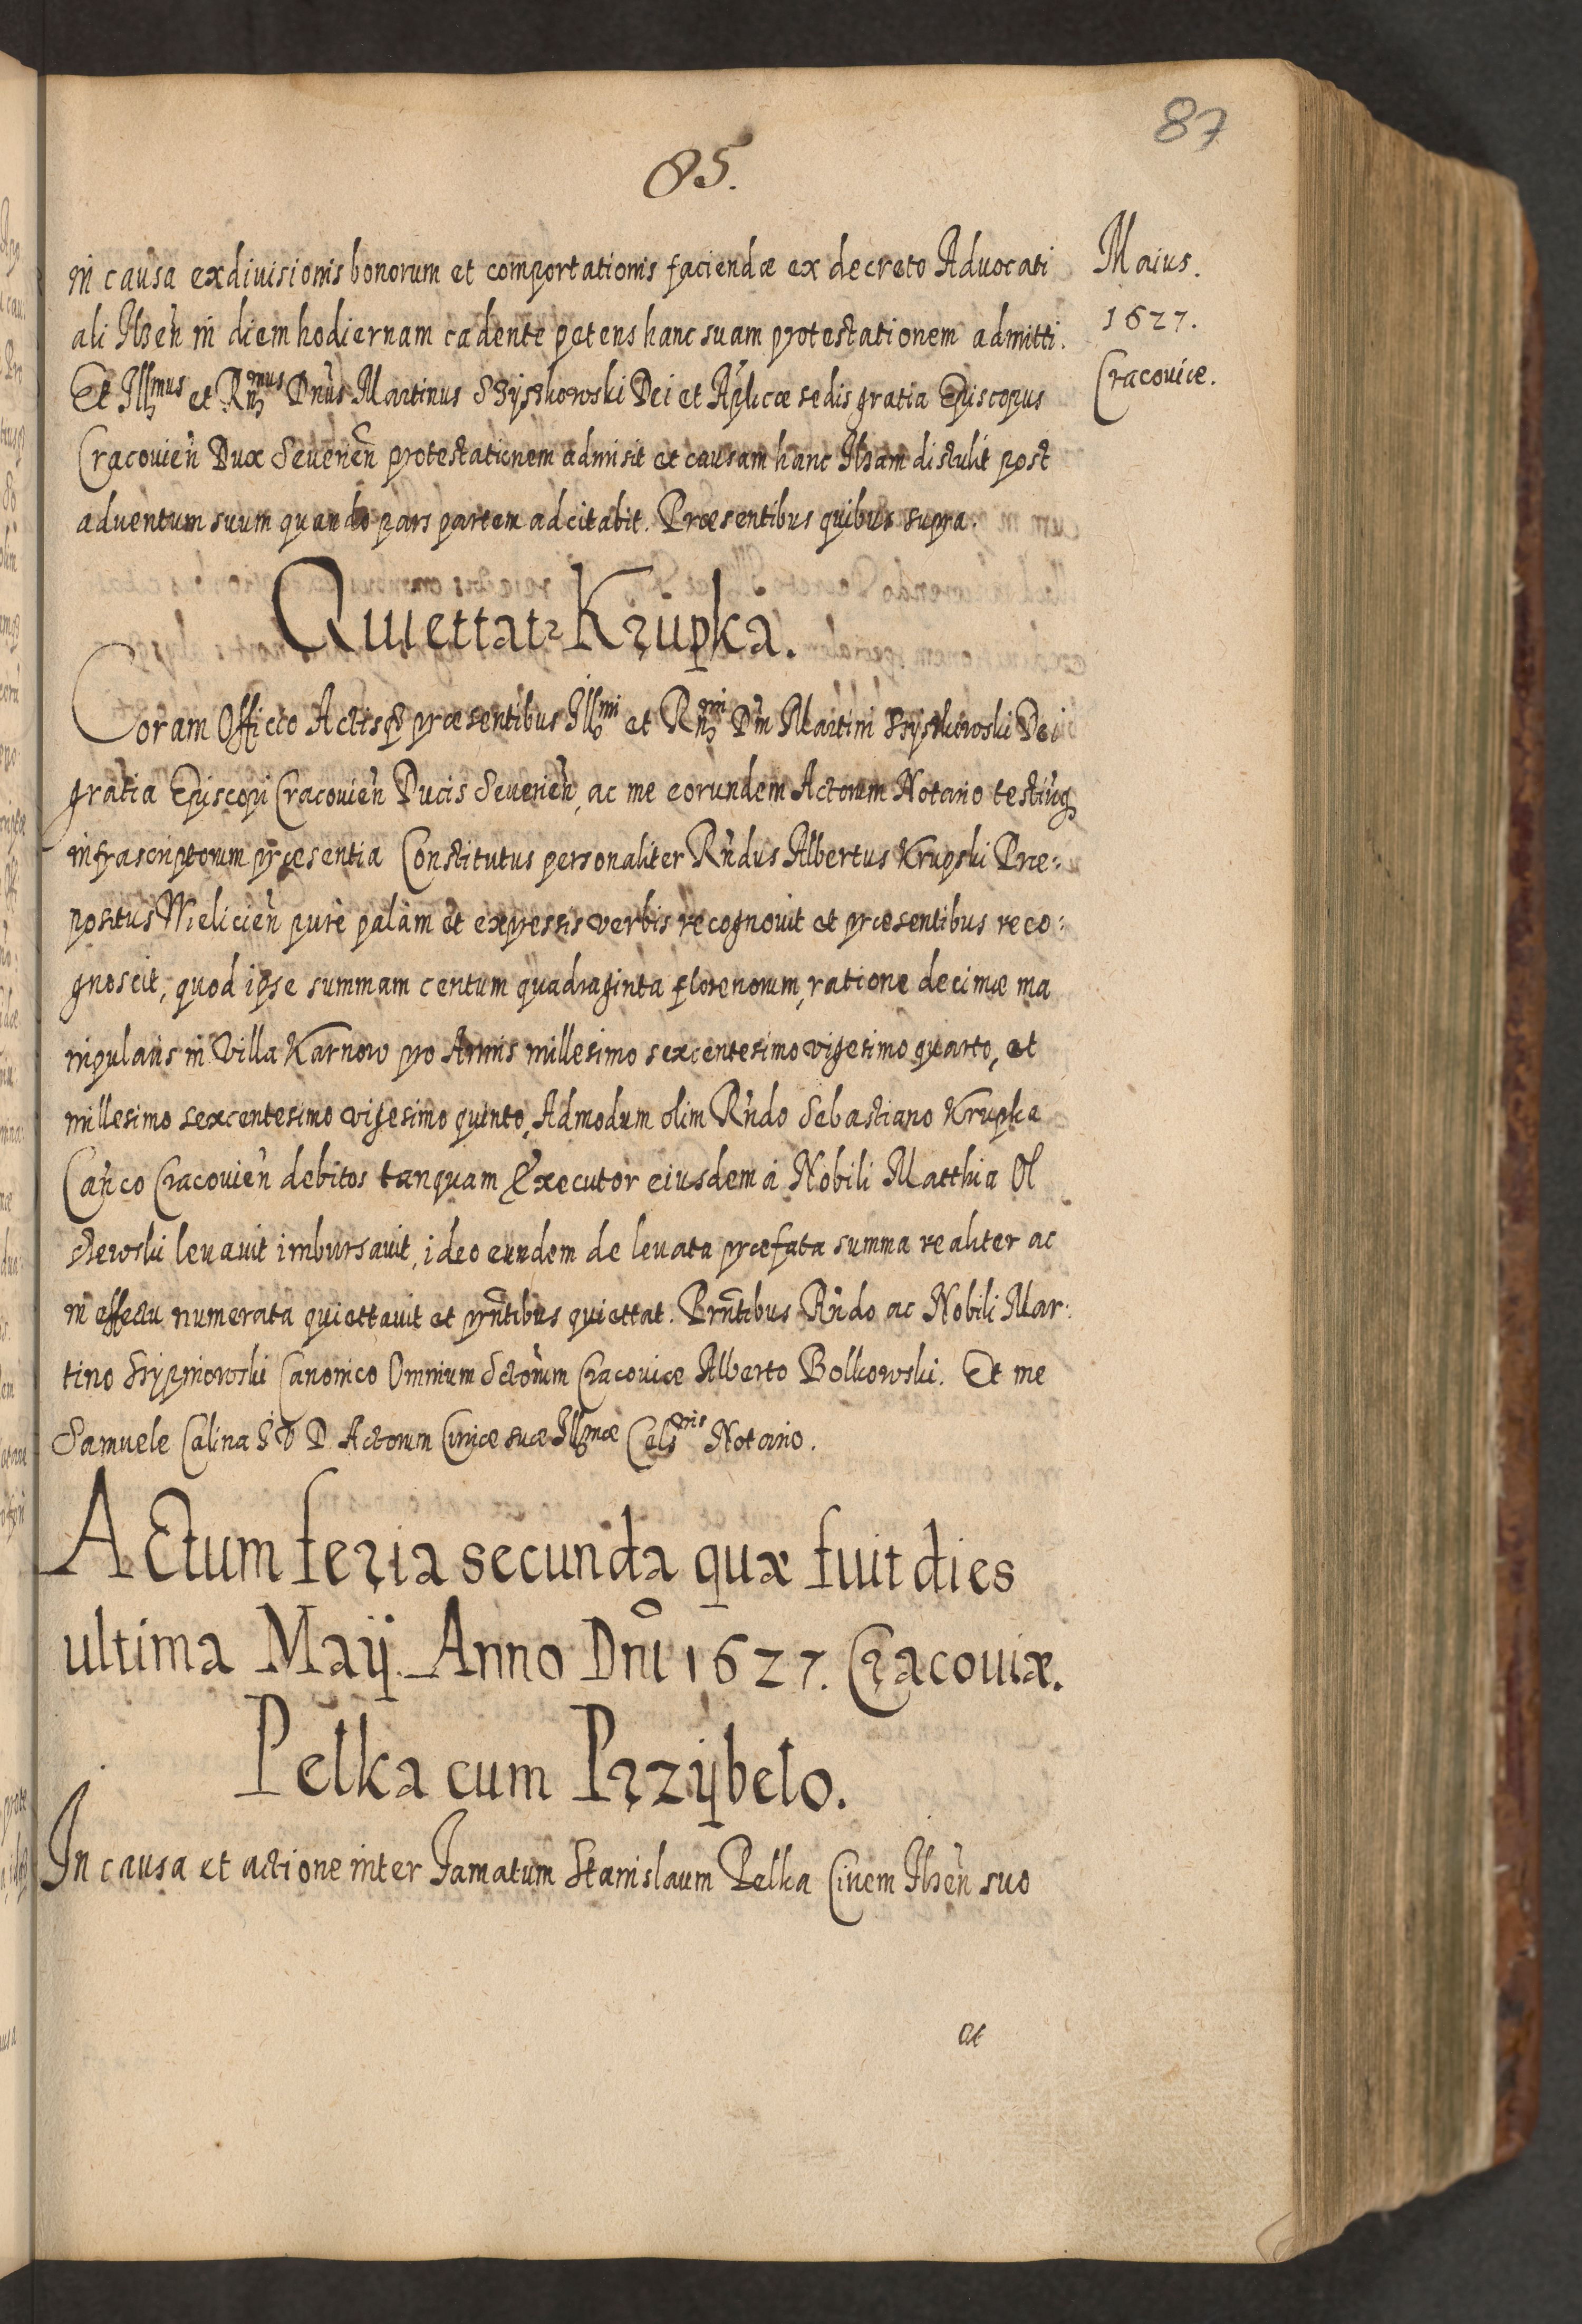 87
85.
Maius.
1627.
Cracoviæ.
in causa exdivisionis bonorum et comportationis faciendæ ex decreto Advocati
ali Ilzeñ in diem hodiernam cadente petens hanc suam protestationem admitti.
Et Illmus et Rnmus Dnus Martinus Szyszkowski Dei et Aplicæ sedis gratia Episcopus
Cracovien Dux Severien protestationem admisit et causam hanc Ilzam distulit post
adventum suum quando pars partem adcitabit. Præsentibus quibus supra.
Quiettatr Krupka.
Coram Officio Actisq præsentibus Illmi et Rnmi Dni Martini Szyszkowski Dei
gratia Episcopi Cracovien Ducis Severien, ac me eorundem Actorum Notario testiuq
infrascriptorum præsentia Constitutus personaliter Rndus Albertus Krupski Præ:
positus Wielicien purè palàm et expressis verbis recognovit et præsentibus reco:
gnoscit, quod ipse summam centum quadraginta florenorum, ratione decimæ ma
nipularis in Villa Karnow pro Annis millesimo sexcentesimo vigesimo quarto, et
millesimo sexcentesimo vigesimo quinto, Admodum olim Rndo Sebastiano Krupka
Canco Cracovien debitos tanquam Executor eiusdem à Nobili Matthia Ol
stewski levavit imbursavit, ideo eundem de levata præfata summa realiter ac
in effectu numerata quiettavit et prntibus quiettat. Prntibus Rndo ac Nobili Mar:
tino Szypniowski Canonico Omnium Sctorum Cracoviæ Alberto Bolkowski. Et me
Samuele Calina I V D Actorum Curiæ suæ Illmæ Celsnis Notario.
Actum feria secunda quæ fuit dies
ultima Maij Anno Dni 1627. Cracoviæ.
Pelka cum Przÿbelo.
In causa et actione inter Famatum Stanislaum Pelka Civem Ilzen suo
et